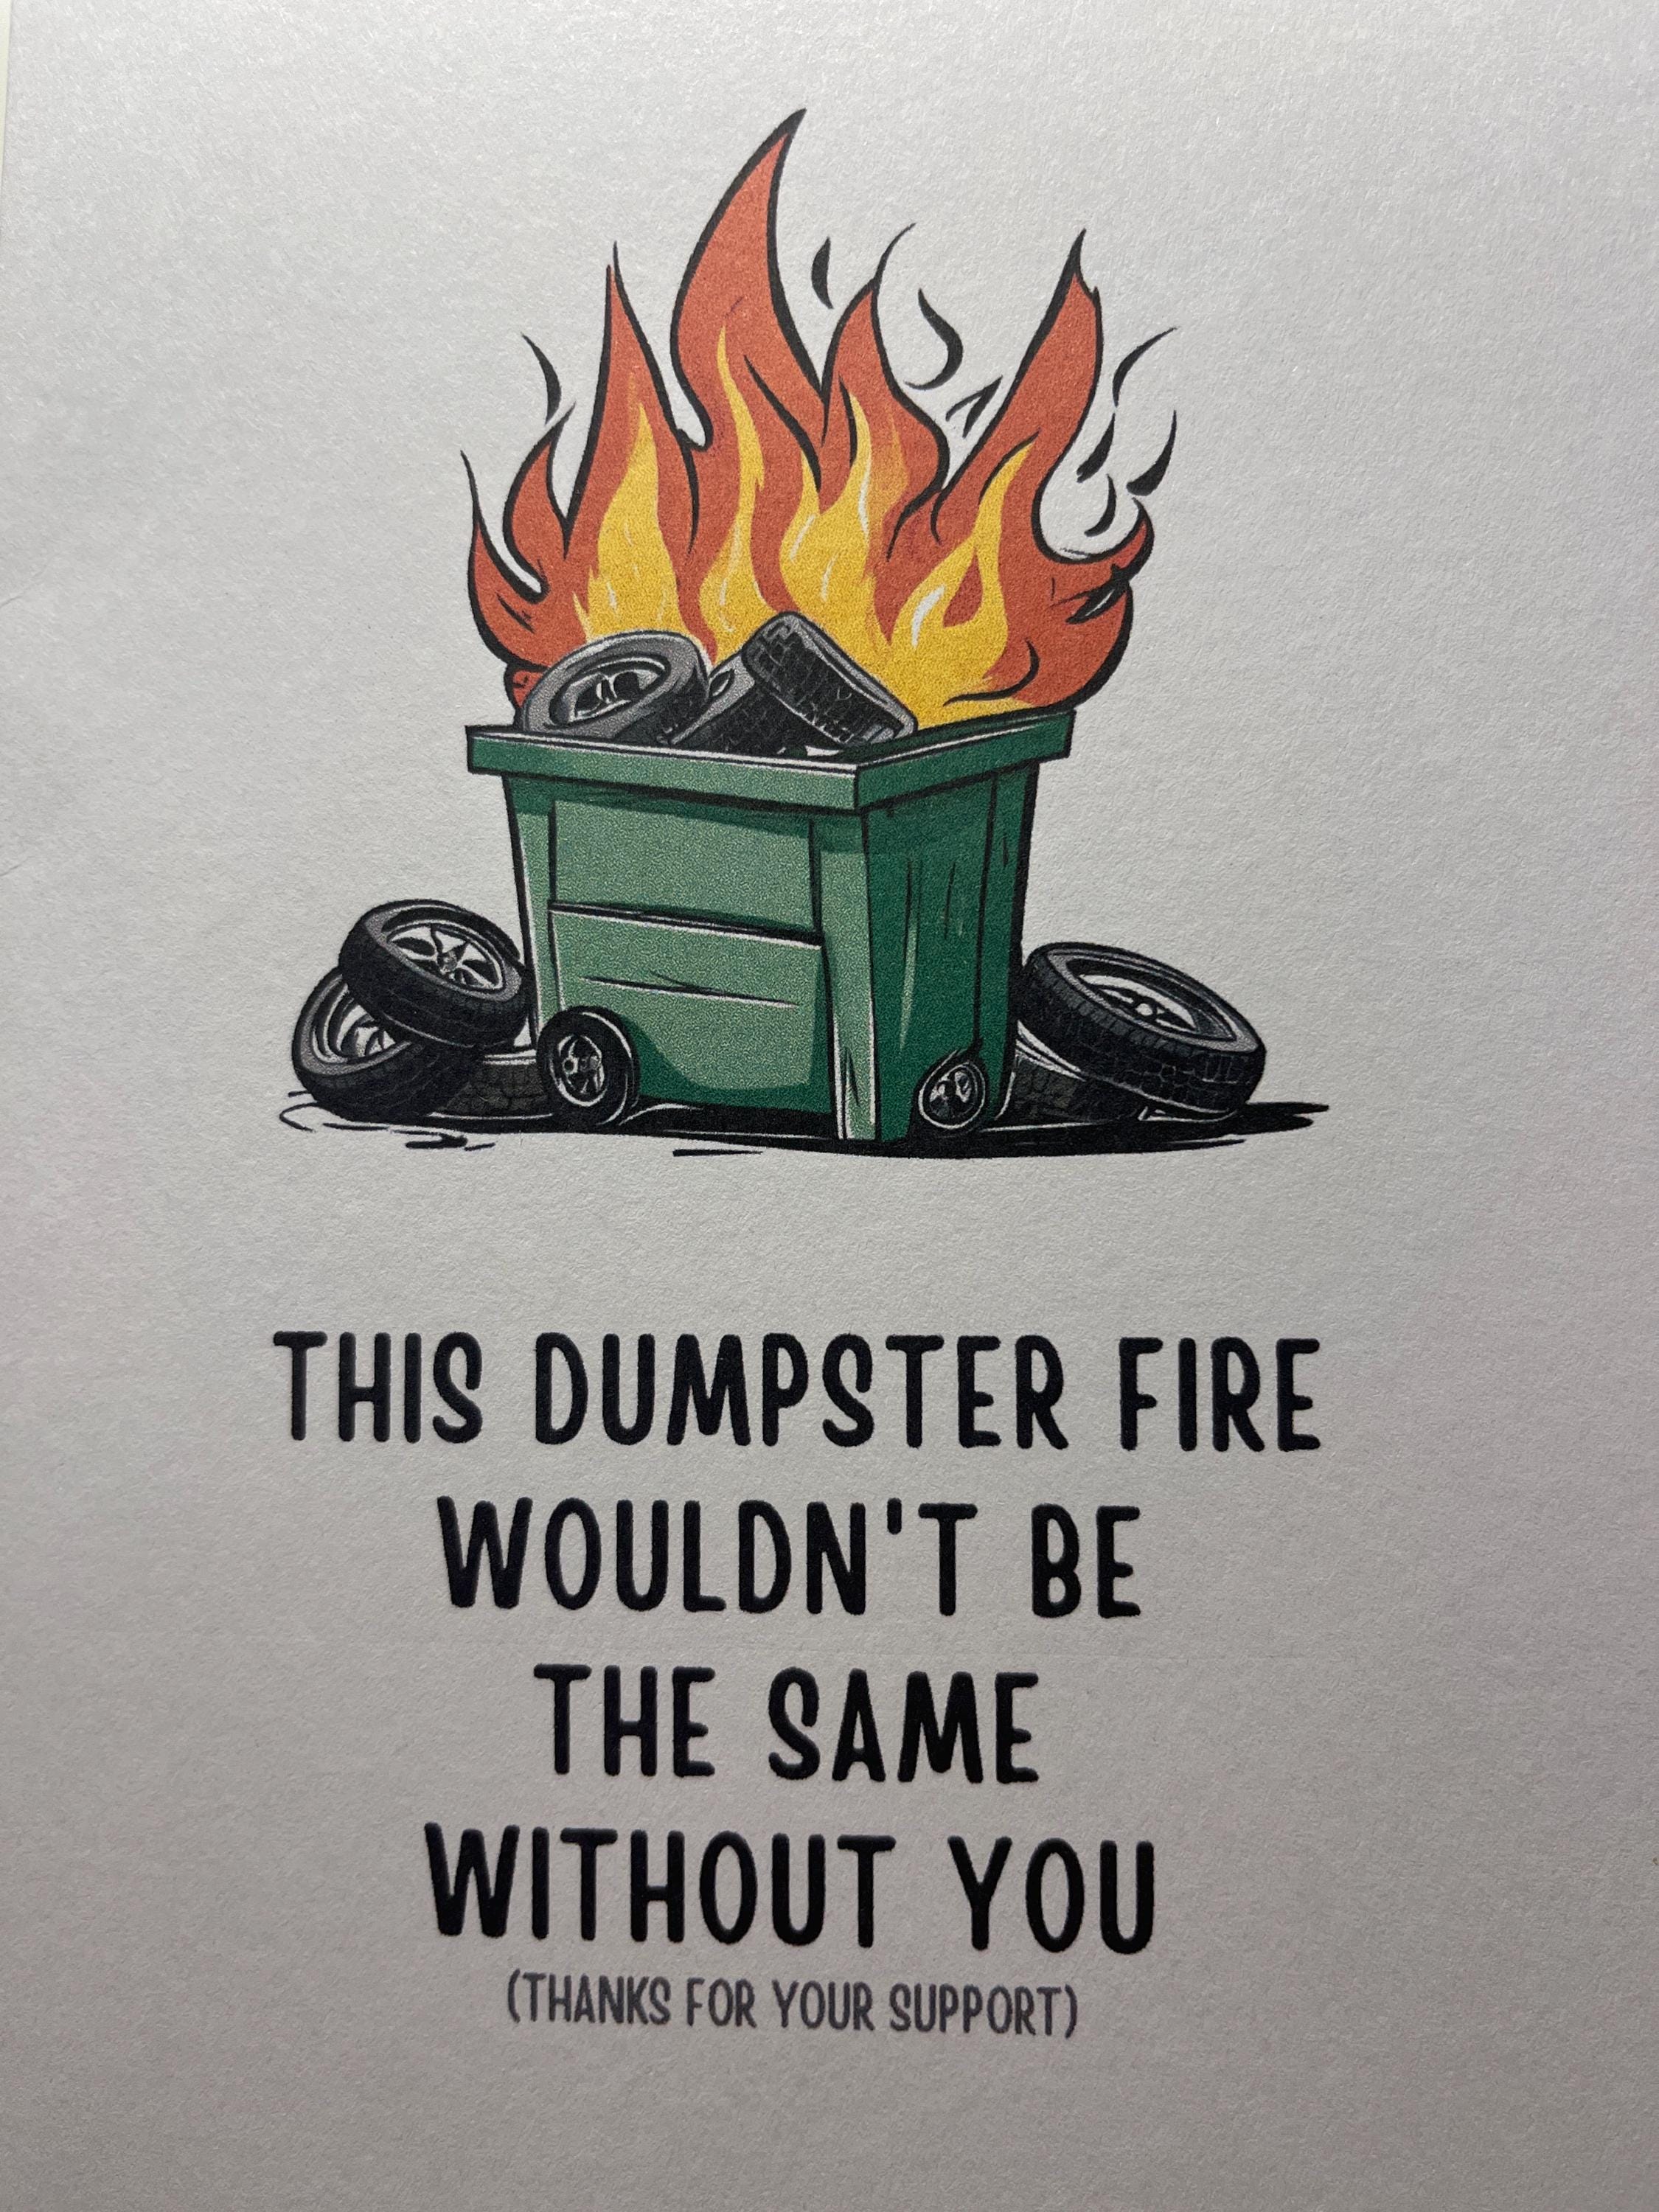 THIS DUMPSTER FIRE
WOULDN'T BE
THE SAME
WITHOUT YOU
(THANKS FOR YOUR SUPPORT)